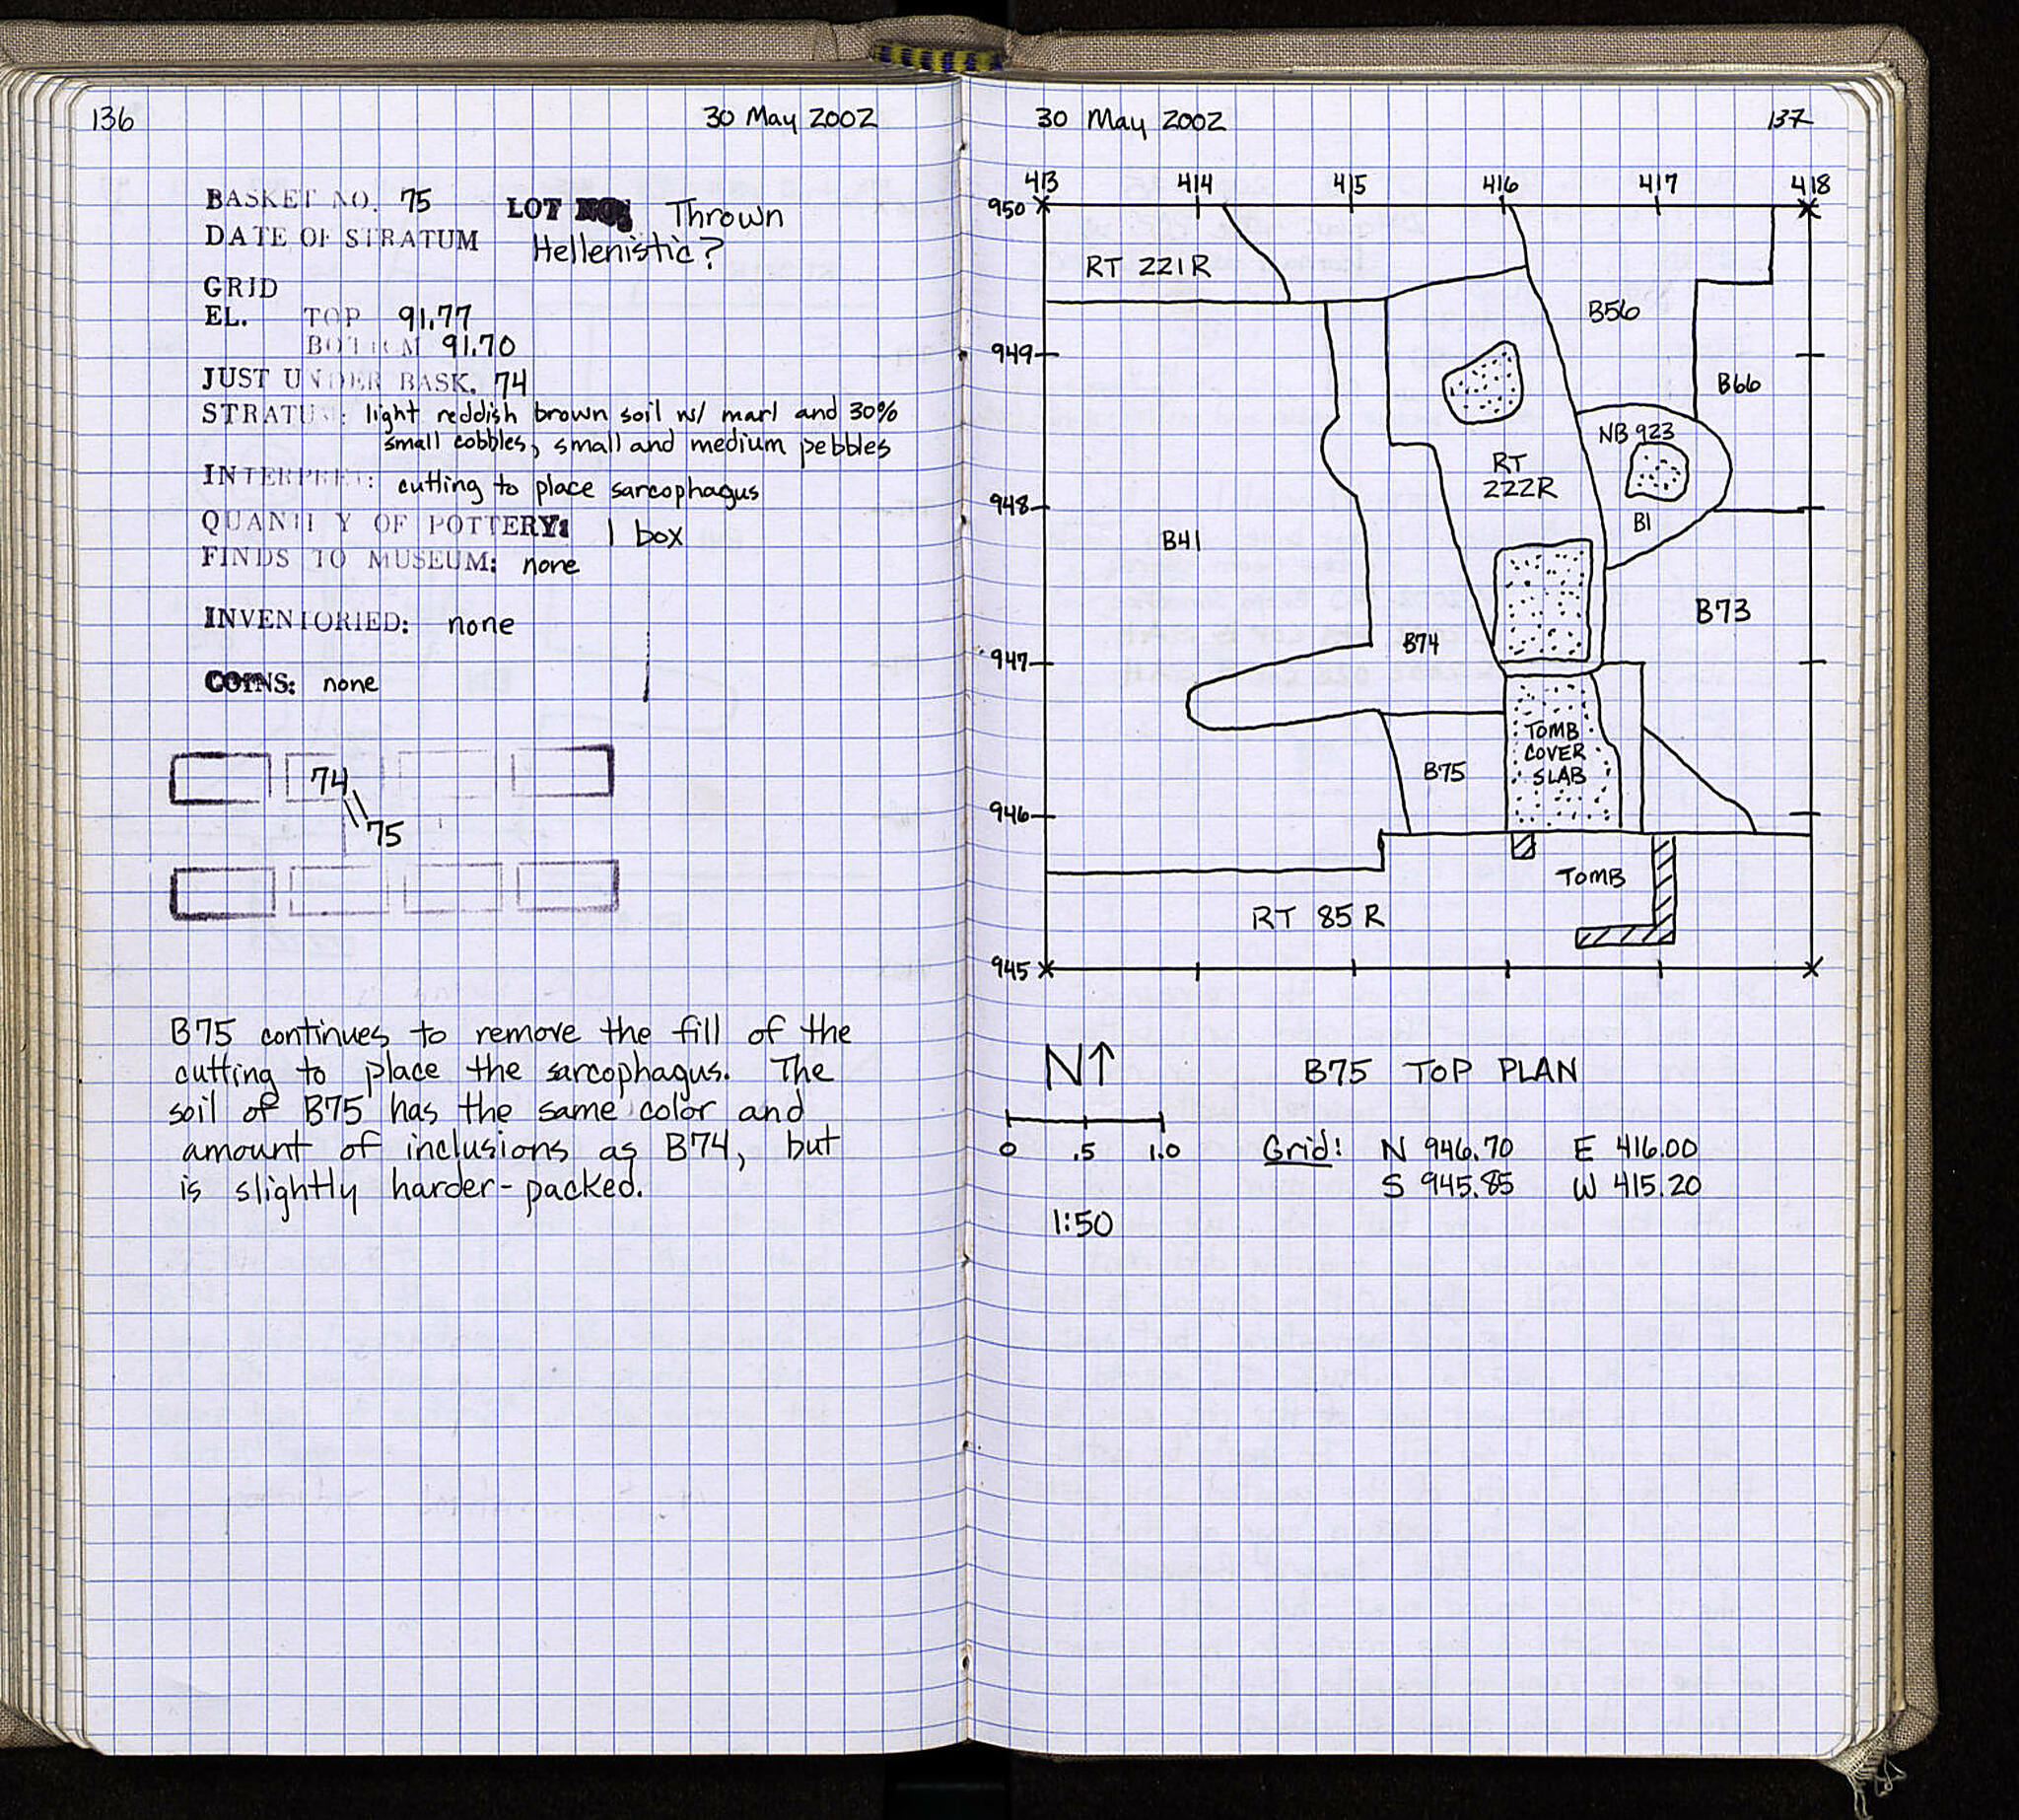 136
30 May 2002
BASKET NO. 75
LOT NO: Thrown
DATE OF STRATUM Hellenistic?
GRID
EL. TOP 91.77
BOTTOM 91.70
JUST UNDER BASK. 74
STRATUM: light reddish brown soil w/ marl and 30%
small cobbles, small and medium pebbles
INTERPRET: cutting to place sarcophagus
QUANTITY OF POTTERY: 1 box
FINDS TO MUSEUM: none
INVENTORIED: none
COINS: none
74
75
B75 continues to remove the fill of the
cutting to place the sarcophagus. The
soil of B75 has the same color and
amount of inclusions as B74, but
is slightly harder-packed.
30 May 2002
137
413 414 415 416 417 418
950
RT 221R
B56
949
B66
NB 923
RT
222R
948
B1
B41
B73
B74
947
TOMB
COVER
SLAB
B75
946
TOMB
RT 85 R
945
N↑
B75 TOP PLAN
0 .5 1.0
Grid: N 946.70 E 416.00
S 945.85 W 415.20
1:50